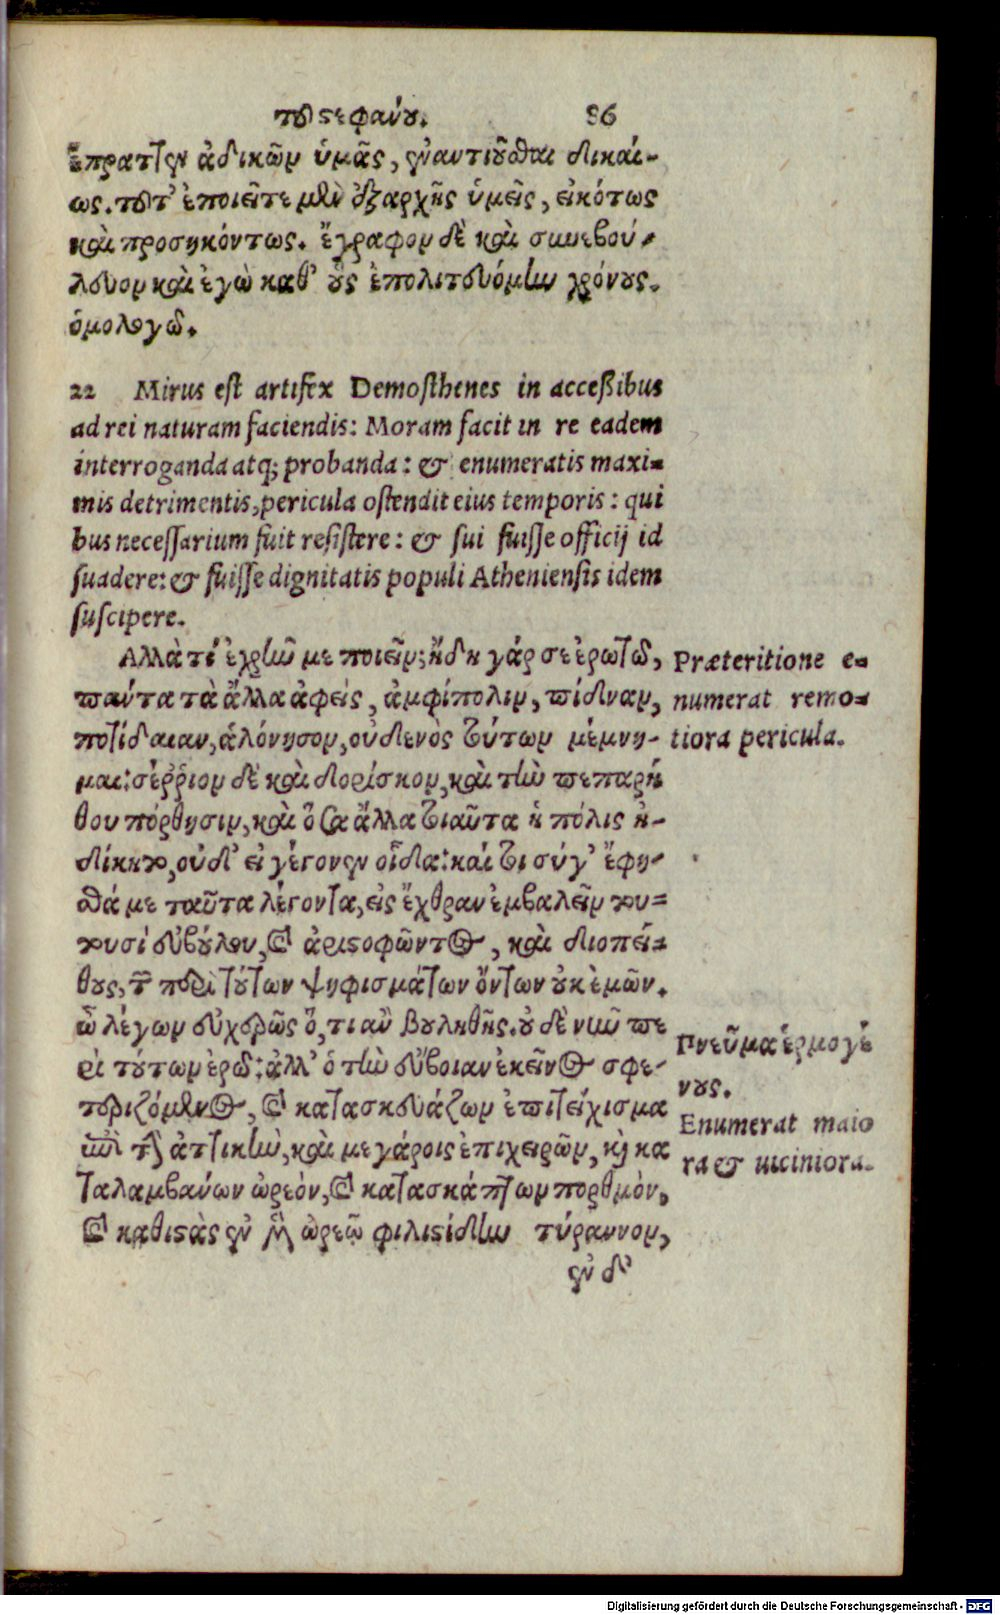 τοῦ στεφάνου. 86
ἔπραττεν ἀδικῶν ὑμᾶς, ἐναντιοῦσθαι δικαί-
ως. τοῦτ' ἐποιεῖτε μὲν ἐξαρχῆς ὑμεῖς, εἰκότως
καὶ προσηκόντως. ἔγραφον δὲ καὶ συνεβού-
λευον καὶ ἐγὼ καθ' οὓς ἐπολιτευόμην χρόνους.
ὁμολογῶ.
22 Mirus est artifex Demosthenes in acceßibus
ad rei naturam faciendis: Moram facit in re eadem
interroganda atq; probanda: & enumeratis maxi-
mis detrimentis, pericula ostendit eius temporis: qui
bus necessarium fuit resistere: & sui fuisse officij id
suadere: & fuisse dignitatis populi Atheniensis idem
suscipere.
Αλλὰ τί ἐχρῆν με ποιεῖν; ἤδη γάρ σε ἐρωτῶ,
πάντα τὰ ἄλλα ἀφείς, ἀμφίπολιν, πύδιναν,
ποτίδαιαν, ἁλόνησον, οὐδενὸς τούτων μέμνη-
μαι: σέρριον δὲ καὶ δορίσκον, καὶ τὴν πεπαρή
θου πόρθησιν, καὶ ὅσα ἄλλα τοιαῦτα ἡ πόλις ἠ-
δίκητο, οὐδ' εἰ γέγονεν οἶδα: καί τοι σύ γ' ἔφη-
σθά με ταῦτα λέγοντα, εἰς ἔχθραν ἐμβαλεῖν του-
τουσὶ εὐβούλου, καὶ ἀριστοφῶντος, καὶ διοπεί-
θους, τῶν περὶ τούτων ψηφισμάτων ὄντων οὐκ ἐμῶν.
ὦ λέγων εὐχερῶς ὅ, τι ἂν βουληθῇς. οὐ δὲ νῦν πε
ρὶ τούτων ἐρῶ: ἀλλ' ὁ τὴν εὔβοιαν ἐκεῖνος σφε-
τεριζόμενος, καὶ κατασκευάζων ἐπιτείχισμα
ἐπὶ τὴν ἀττικὴν, καὶ μεγάροις ἐπιχειρῶν, καὶ κα
ταλαμβάνων ὠρεόν, καὶ κατασκάπτων πορθμὸν,
καὶ καθιστὰς ἐν μὲν ὠρεῷ φιλιστίδην τύραννον,
ἐν δ'
Præteritione e-
numerat remo-
tiora pericula.
Πνεῦμα ἑρμογέ
νους.
Enumerat maio
ra & uiciniora.
Digitalisierung gefördert durch die Deutsche Forschungsgemeinschaft - DFG